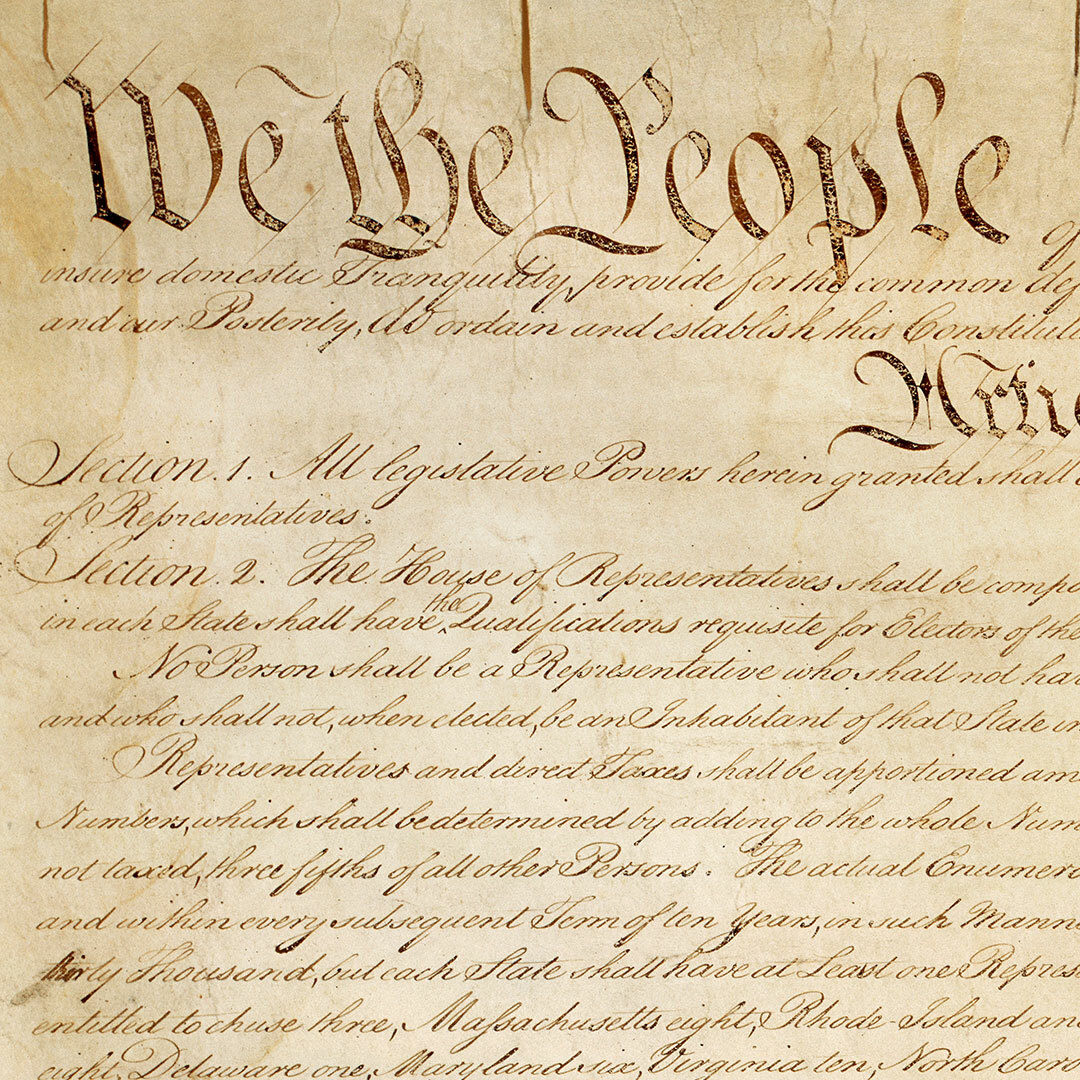 We the People
insure domestic Tranquility, provide for the common def
and our Posterity, do ordain and establish this Constitut
Artic
Section. 1. All legislative Powers herein granted shall
of Representatives.
Section. 2. The House of Representatives shall be compo
in each State shall have the Qualifications requisite for Electors of the
No Person shall be a Representative who shall not hav
and who shall not, when elected, be an Inhabitant of that State in
Representatives and direct Taxes shall be apportioned am
Numbers, which shall be determined by adding to the whole Num
not taxed, three fifths of all other Persons. The actual Enumer
and within every subsequent Term of ten Years, in such Mann
thirty Thousand, but each State shall have at Least one Repres
entitled to chuse three, Massachusetts eight, Rhode-Island an
eight, Delaware one, Maryland six, Virginia ten, North Car